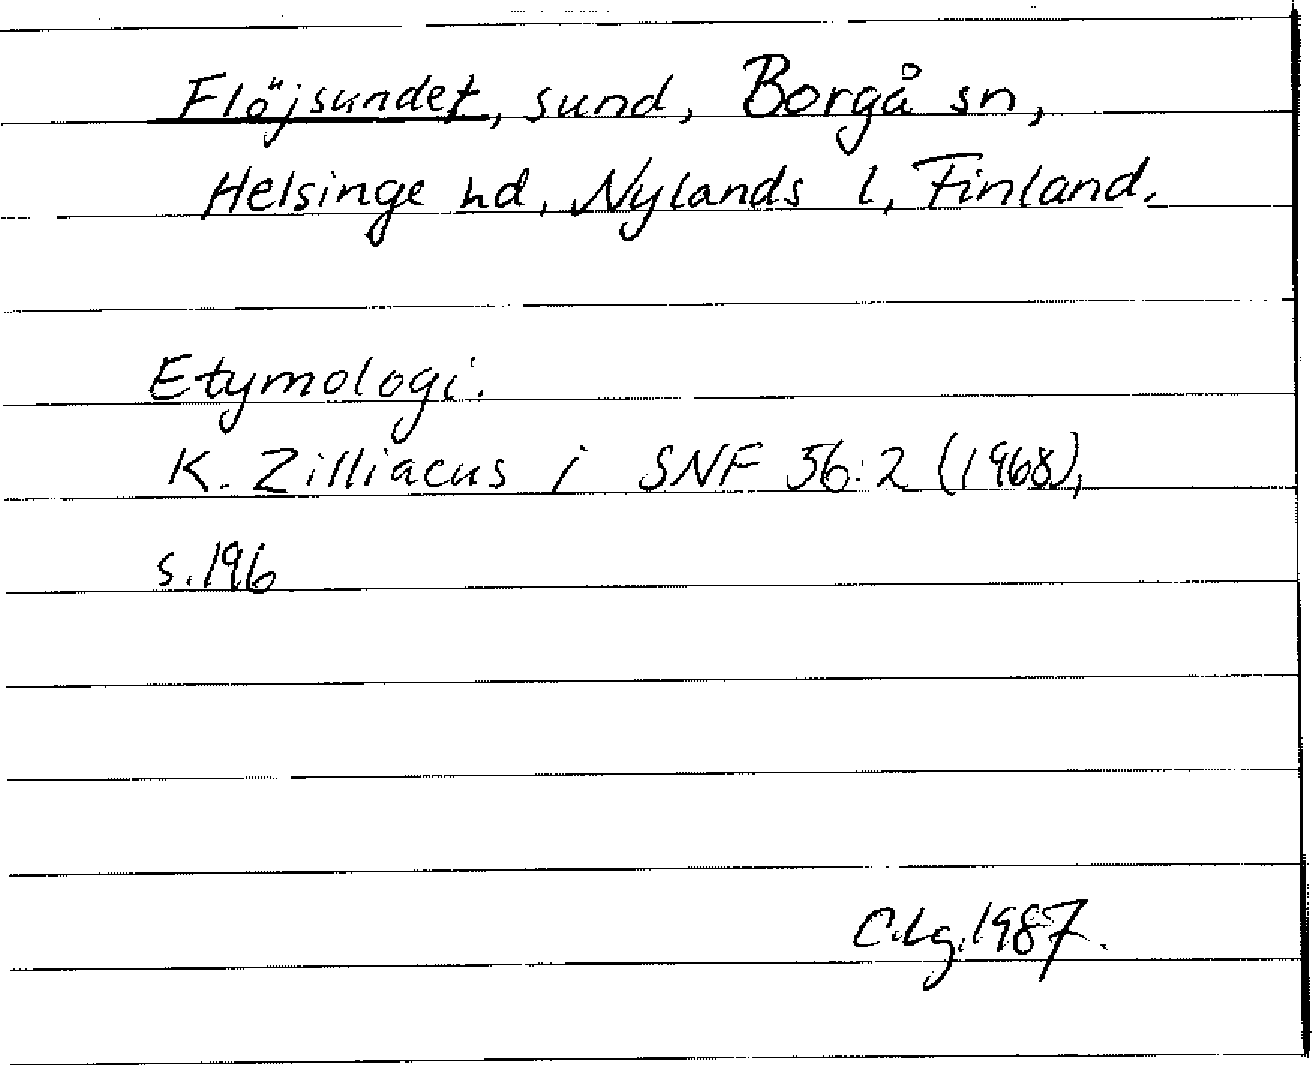 Flöjsundet, sund, Borgå sn,
Helsinge hd, Nylands l, Finland.
Etymologi.
K. Zilliacus i SNF 56:2 (1968),
s. 196
C.Lg. 1987.